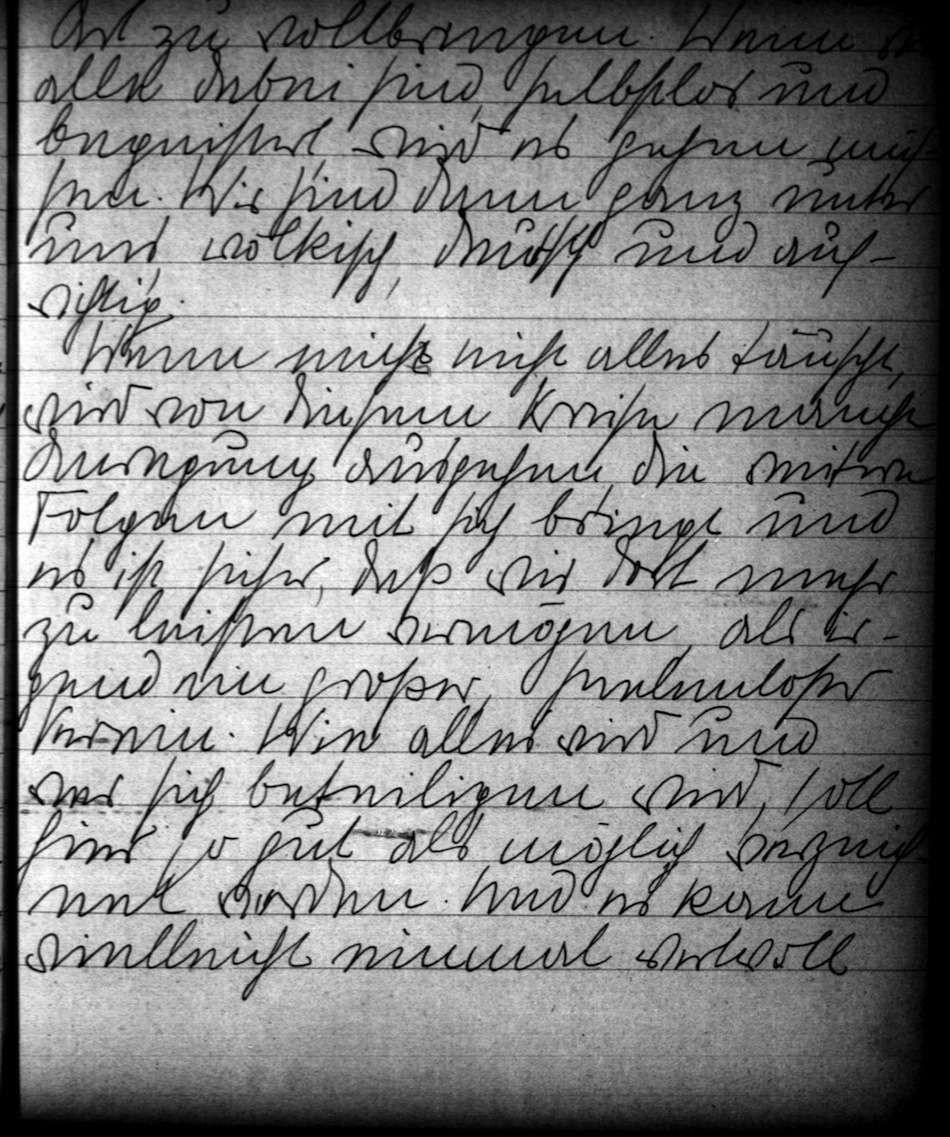 Art zu vollbringen. Wenn
alle dabei sind, selbstlos und
begeistert wird es gehen müs-
sen. Wir sind dann ganz unter
uns völkisch, deutsch und auf-
richtig.
Wenn mich nicht alles täuscht,
wird von diesem Kreise manche
Anregung ausgehen, die weitere
Folgen mit sich bringt und
es ist sicher, daß wir dort mehr
zu leisten vermögen, als ir-
gend ein großer, seelenloser
Verein. Wie alles wird und
wer sich beteiligen wird, soll
hier so gut als möglich verzeich-
net werden. Und es kann
vielleicht einmal wertvoll